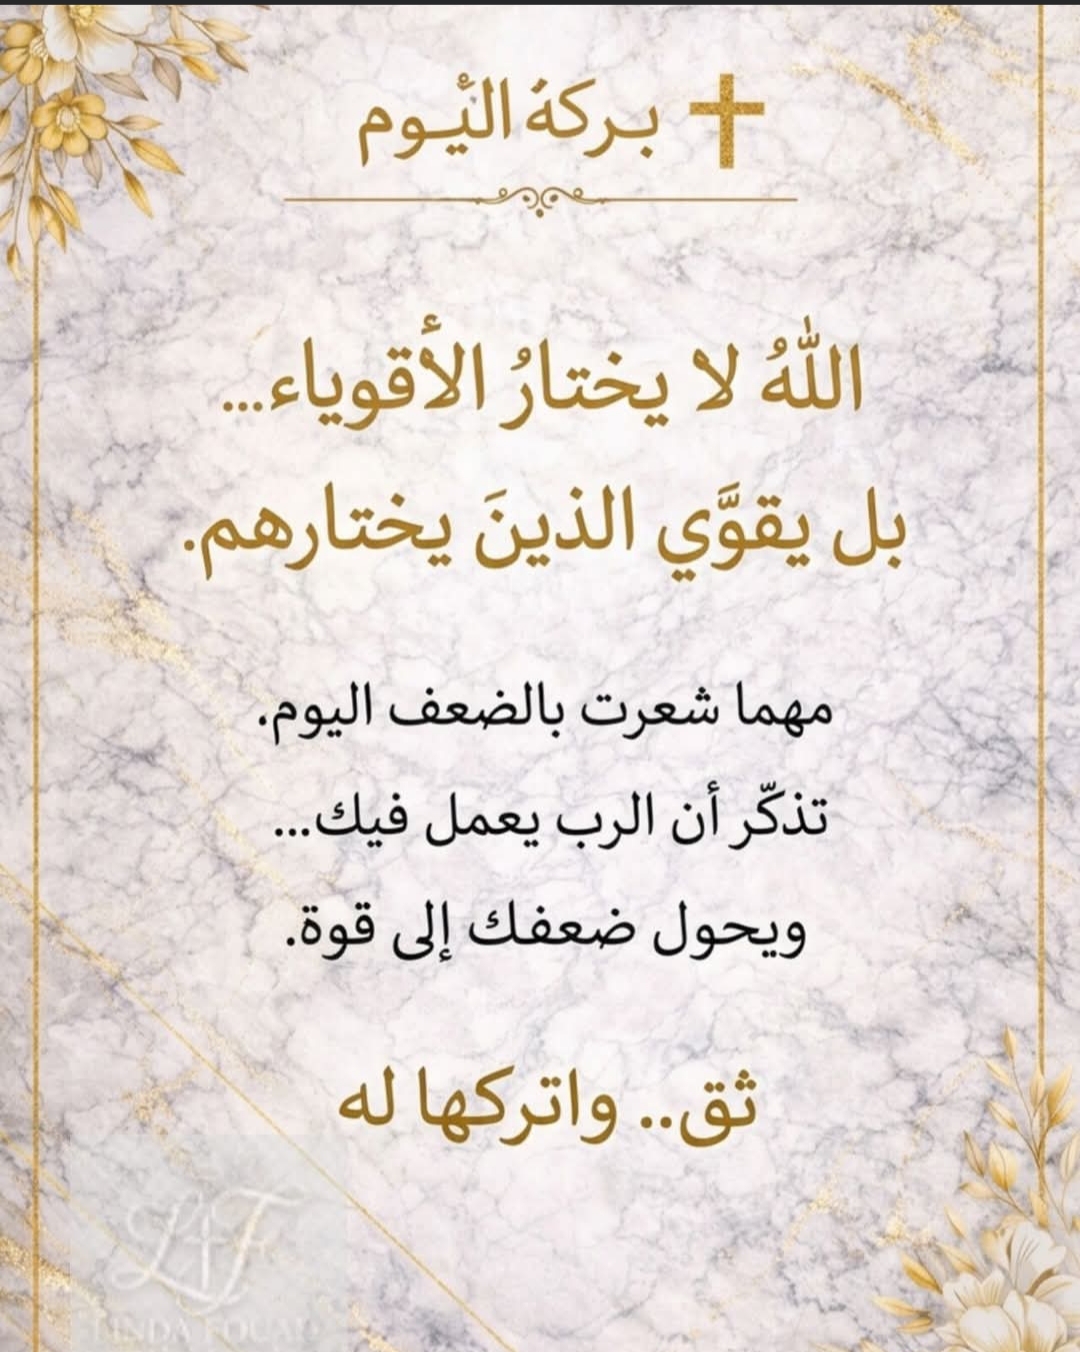 بركة اليوم
اللّٰهُ لا يختارُ الأقوياء...
بل يقوَّي الذينَ يختارهم.
مهما شعرت بالضعف اليوم.
تذكّر أن الرب يعمل فيك...
ويحول ضعفك إلى قوة.
ثق.. واتركها له
LF
LINDA FOUAD